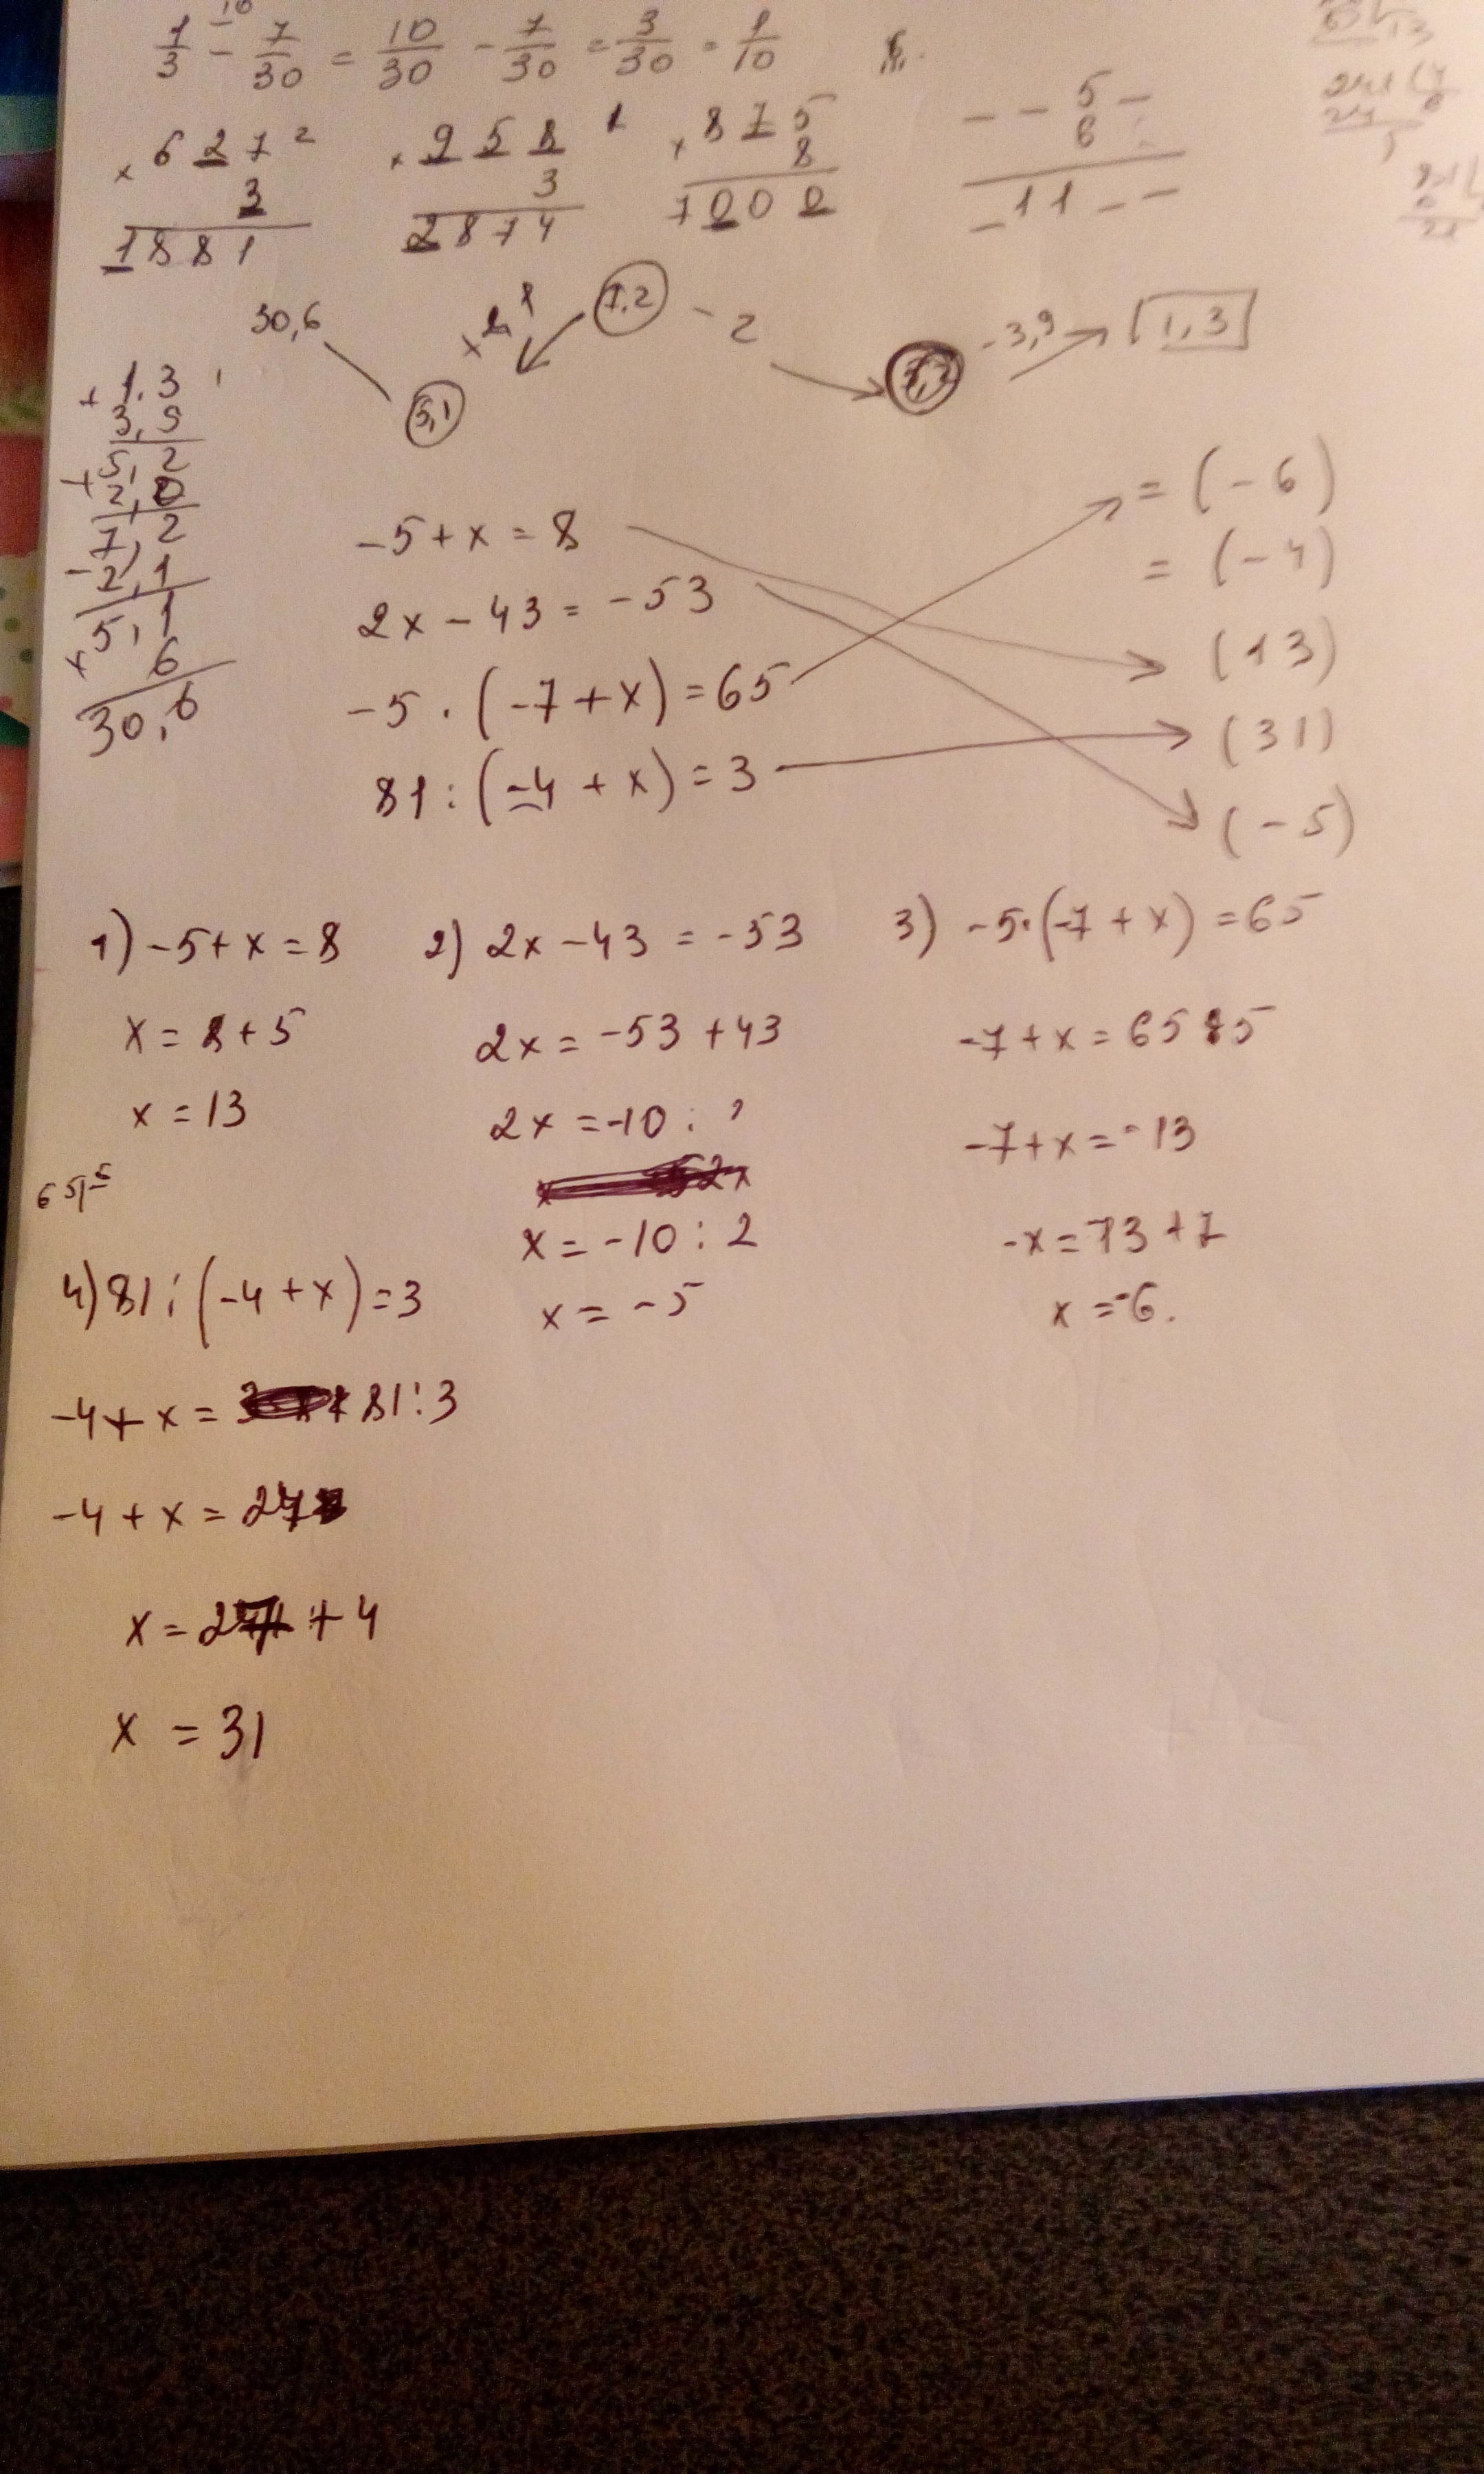 1/3 - 7/30 = 10/30 - 7/30 = 3/30 = 1/10
× 6 2 7 2
3
1 8 8 1
× 9 5 8 1
3
2 8 7 4
× 8 7 5
8
7 0 0 0
_ _ 5 _
6
_ 1 1 _ _
30,6
5,1
7,2
- 2
- 3,9
1,3
+ 1,3
3,9
5,2
+ 2,0
7,2
- 2,1
5,1
× 6
30,6
-5 + x = 8
2x - 43 = -53
-5 · (-7 + x) = 65
81 : (-4 + x) = 3
= (-6)
= (-4)
(13)
(31)
(-5)
1) -5 + x = 8
x = 8 + 5
x = 13
2) 2x - 43 = -53
2x = -53 + 43
2x = -10 :
x = -10 : 2
x = -5
3) -5·(-7 + x) = 65
-7 + x = -13
x = -6.
4) 81 : (-4 + x) = 3
-4 + x = 81 : 3
-4 + x = 27
x = 27 + 4
x = 31